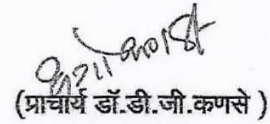 (प्राचार्य डॉ.डी.जी.कणसे )